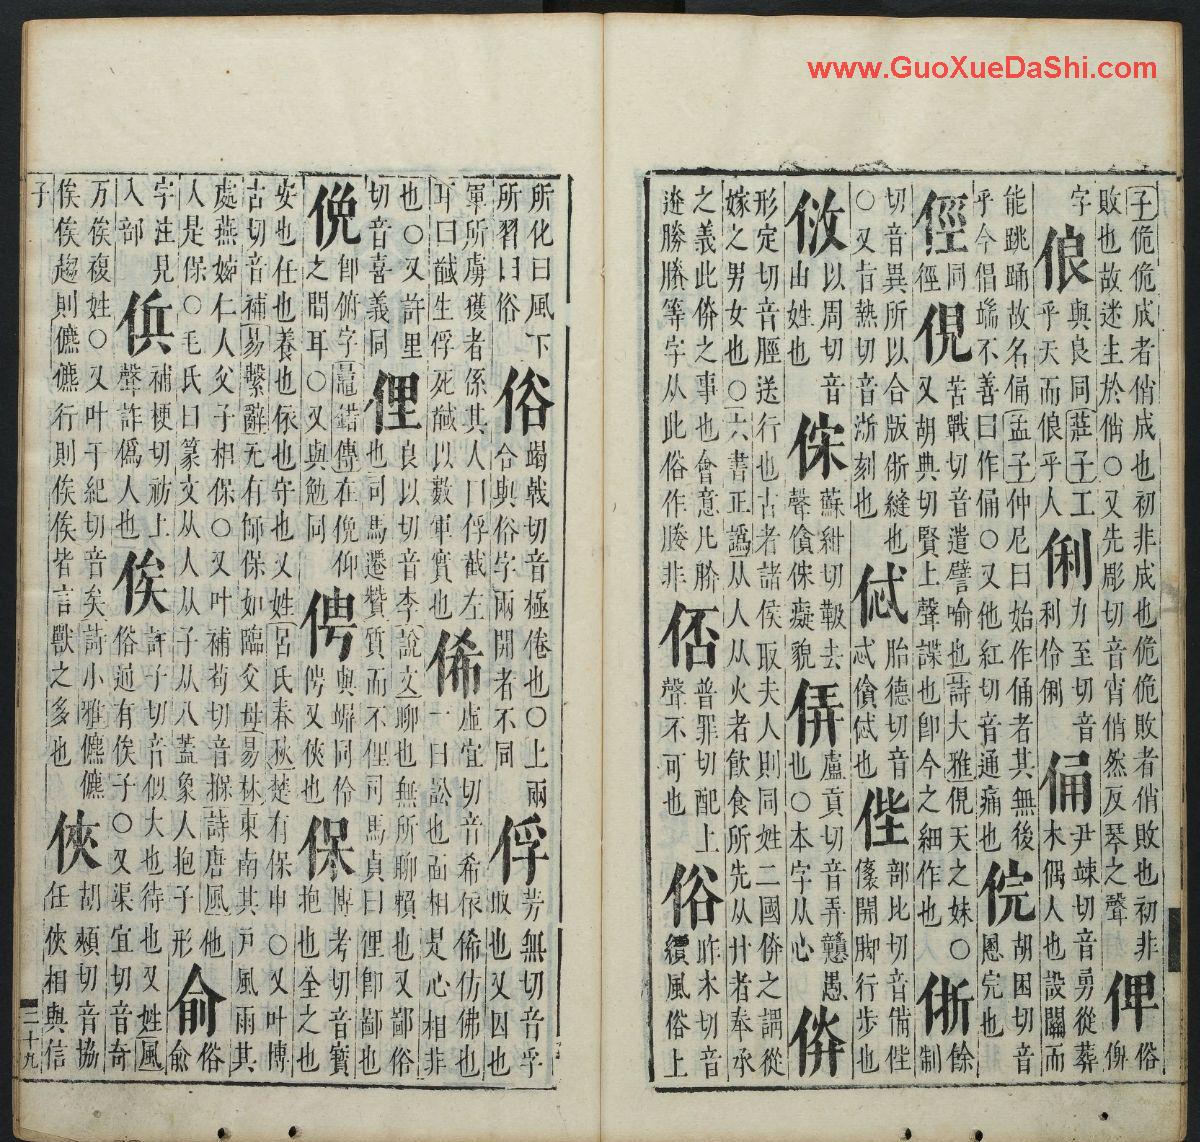 www.GuoXueDaShi.com
子佹佹成者俏成也初非成也佹佹敗者俏敗也初非
敗也故迷生於俏○又先彫切音宵俏然反琴之聲
俾
俗
俾
字
俍
與良同莊子工
乎天而俍乎人
俐
力至切音
利伶俐
俑
尹竦切音勇從葬
木偶人也設關而
能跳踊故名俑孟子仲尼曰始作俑者其無後
乎今倡端不善曰作俑○又他紅切音通痛也
俒
胡困切音
慁完也
俓
同
徑
俔
苦戰切音遣譬喻也詩大雅俔天之妹○
又胡典切賢上聲諜也卽今之細作也
餘
制
切音異所以合版縫也
○又旨熱切音浙刻也
胎德切音
忒儥也
部比切音備
開脚行步也
以周切音
由姓也
㑣
蘇紺切鞁去
聲儑㑣癡貌
㑝
盧貢切音弄戇愚
也○本字从心
形定切音脛送行也古者諸侯取夫人則同姓二國之謂從
嫁之男女也○六書正譌从人从火者飲食所先从廾者奉承
之義此之事也會意凡
勝騰等字从此俗作媵非
俖
普罪切配上
聲不可也
俗
昨木切音
續風俗上
所化曰風下
所習曰俗
竭戟切音極倦也○上兩
合與俗字兩開者不同
俘
芳無切音孚
取也又囚也
軍所虜獲者係其人曰俘截左
耳曰馘生俘死馘以數軍實也
俙
虛宜切音希依俙仿佛也
一曰訟也面相是心相非
也○又許里
切音喜義同
俚
良以切音李說文聊也無所聊賴也又鄙俗
也司馬遷贊質而不俚司馬貞曰俚卽鄙也
俛
卽俯字鼂錯傳在俛仰
之間耳○又與勉同
俜
與娉同伶
俜又俠也
保
博考切音寶
抱也全之也
安也任也養也依也守也又姓呂氏春秋楚有保申○又叶博
古切音補易繫辭无有師保如臨父母易林東南其戸風雨其
處燕婉仁人父子相保○又叶補苟切音詩唐風他
人是保○毛氏曰篆文从人从子从八蓋象人抱子形
俞
俗
俞
字注見
入部
補梗切祊上
聲詐僞人也
俟
許子切音似大也待也又姓風
俗通有俟子○又渠宜切音奇
万俟複姓○又叶于紀切音矣詩小雅儦儦
俟俟趨則儦儦行則俟俟皆言獸之多也
俠
胡頰切音協
任俠相與信
子
三十九